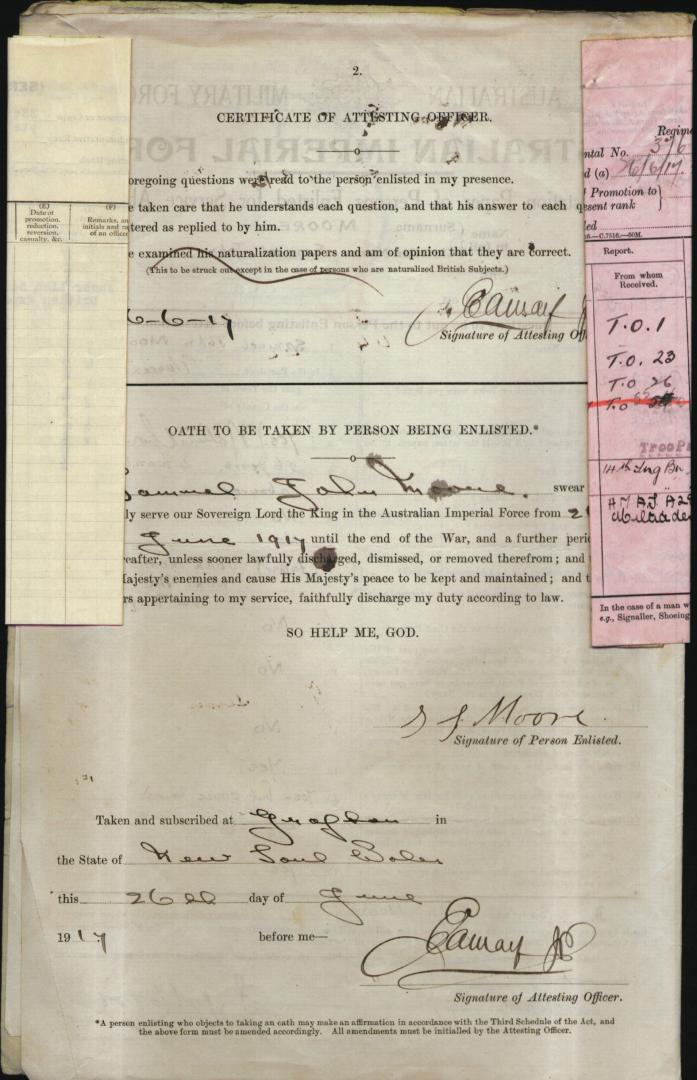 2.
CERTIFICATE OF ATTESTING OFFICER.
oregoing questions were read to the person enlisted in my presence.
e taken care that he understands each question, and that his answer to each q
tered as replied to by him.
e examined his naturalization papers and am of opinion that they are correct.
(This to be struck out except in the case of persons who are naturalized British Subjects.)
6-6-17
Signature of Attesting Off
OATH TO BE TAKEN BY PERSON BEING ENLISTED.*
Samuel John Moore, swear
ly serve our Sovereign Lord the King in the Australian Imperial Force from 2
June 1917 until the end of the War, and a further perio
eafter, unless sooner lawfully discharged, dismissed, or removed therefrom; and
ajesty's enemies and cause His Majesty's peace to be kept and maintained; and t
rs appertaining to my service, faithfully discharge my duty according to law.
SO HELP ME, GOD.
S J Moore.
Signature of Person Enlisted.
Taken and subscribed at Grafton in
the State of New South Wales
this 26th day of June
1917 before me—
JP
Signature of Attesting Officer.
*A person enlisting who objects to taking an oath may make an affirmation in accordance with the Third Schedule of the Act, and
the above form must be amended accordingly. All amendments must be initialled by the Attesting Officer.
(E)
Date of
promotion,
reduction,
reversion,
casualty, &c.
(F)
Remarks, an
initials and ra
of an officer
Regime
ntal No. 376
d (a) 26/6/17
Promotion to
esent rank
ed
Report.
From whom
Received.
T.O. 1
T.O. 23
T.O 26
T.O
TrooP
14th Trg Bn
In the case of a man w
e.g., Signaller, Shoeing